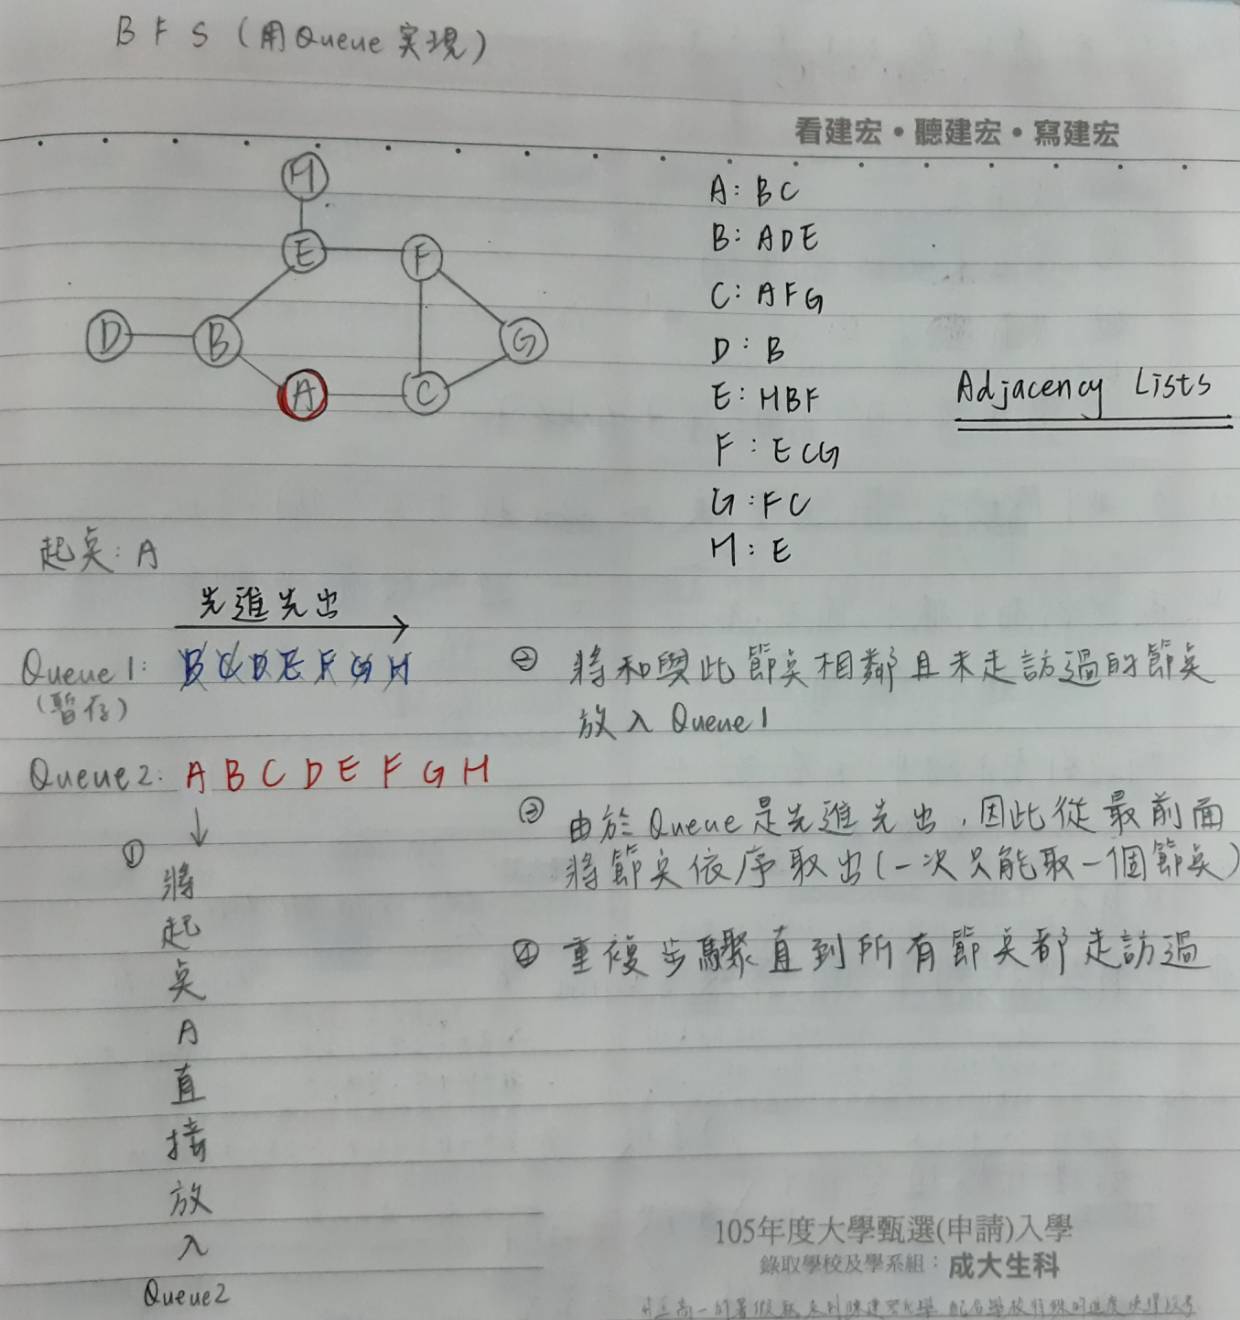 BFS (用Queue实現)
看建宏・聽建宏・寫建宏
H
E
F
D
B
G
A
C
A: BC
B: ADE
C: AFG
D: B
E: HBF
F: ECG
G: FC
H: E
Adjacency Lists
起点: A
先進先出
Queue1: B C D E F G H
(暫存)
Queue2: A B C D E F G H
① 將起点A直接放入Queue2
② 將和與此節点相鄰且未走訪過的節点
放入Queue1
③ 由於Queue是先進先出,因此從最前面
將節点依序取出(一次只能取一個節点)
④ 重複步驟直到所有節点都走訪過
105年度大學甄選(申請)入學
錄取學校及學系組:成大生科